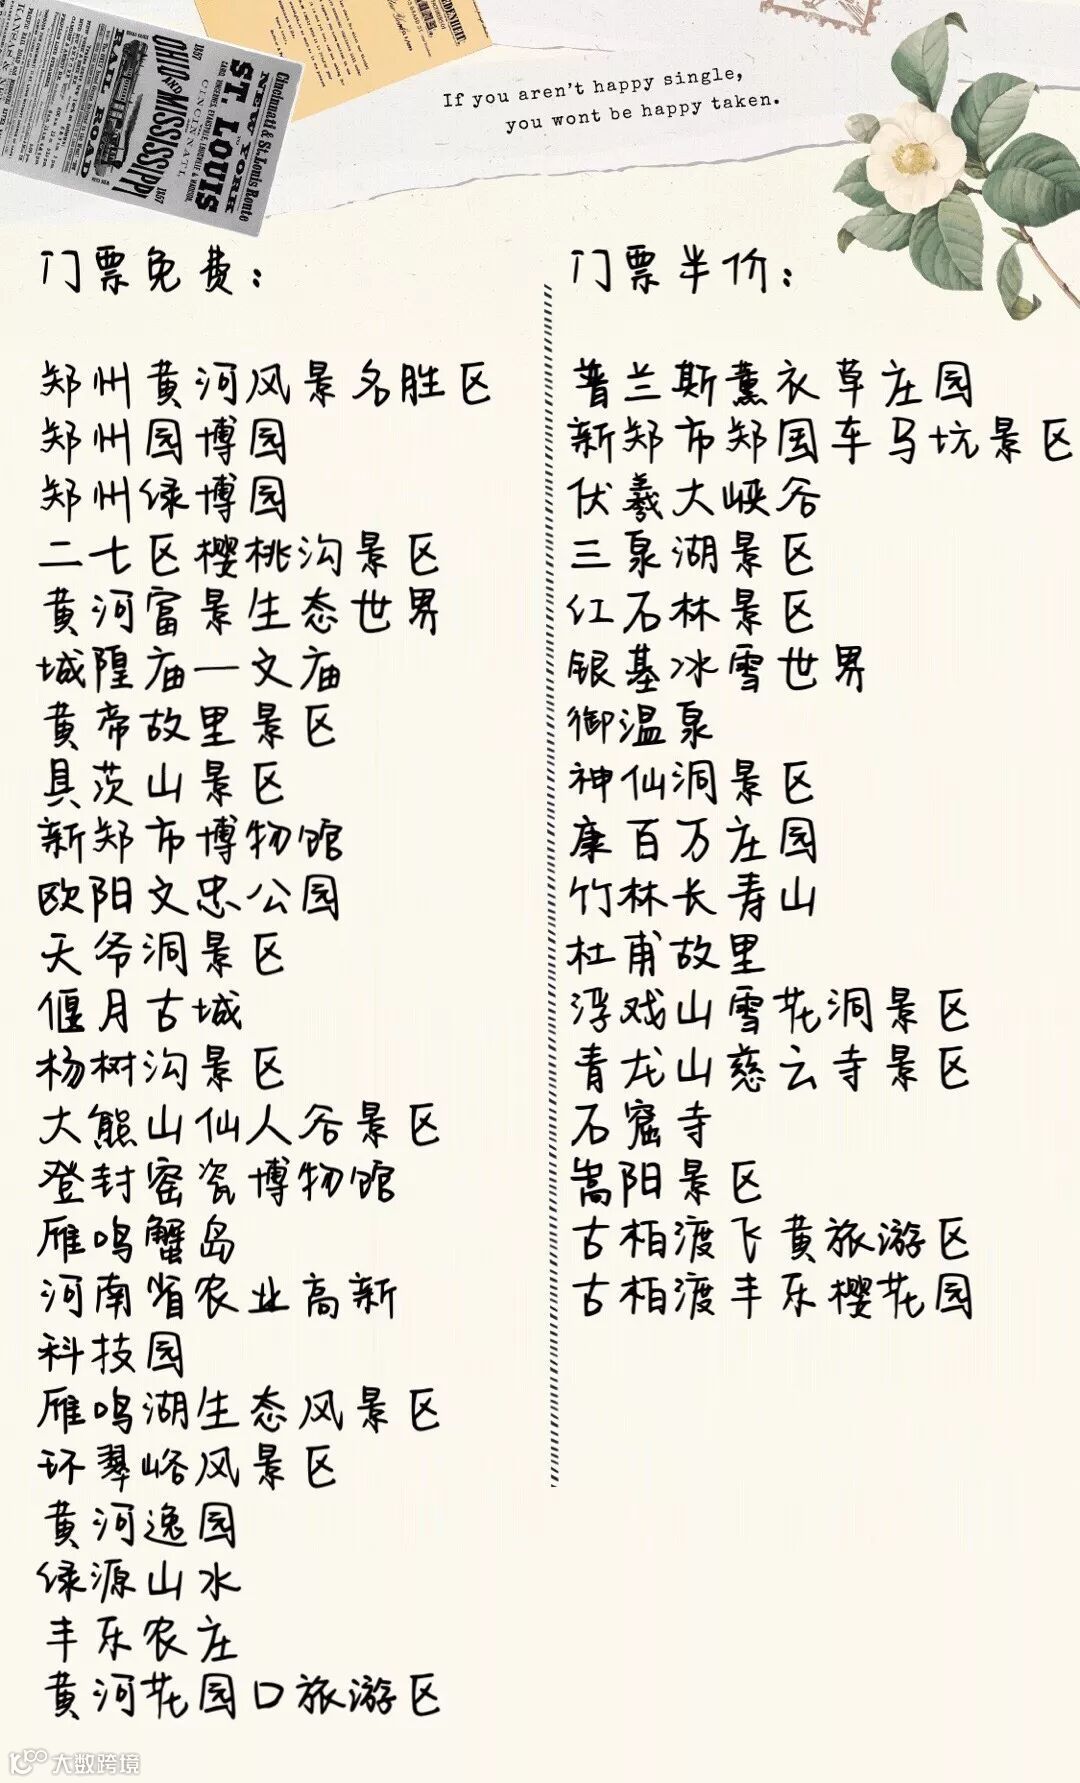 Cincinnati & St. Louis Route
NEW YORK
ST. LOUIS
CINCINNATI,
OHIO AND MISSISSIPPI
RAIL ROAD
1857
1857
If you aren't happy single,
you wont be happy taken.
门票免费：
郑州黄河风景名胜区
郑州园博园
郑州绿博园
二七区樱桃沟景区
黄河富景生态世界
城隍庙—文庙
黄帝故里景区
具茨山景区
新郑市博物馆
欧阳文忠公园
天爷洞景区
偃月古城
杨树沟景区
大熊山仙人谷景区
登封窑瓷博物馆
雁鸣蟹岛
河南省农业高新
科技园
雁鸣湖生态风景区
环翠峪风景区
黄河逸园
绿源山水
丰乐农庄
黄河花园口旅游区
门票半价：
普兰斯薰衣草庄园
新郑市郑国车马坑景区
伏羲大峡谷
三泉湖景区
红石林景区
银基冰雪世界
御温泉
神仙洞景区
康百万庄园
竹林长寿山
杜甫故里
浮戏山雪花洞景区
青龙山慈云寺景区
石窟寺
嵩阳景区
古柏渡飞黄旅游区
古柏渡丰乐樱花园
大数跨境